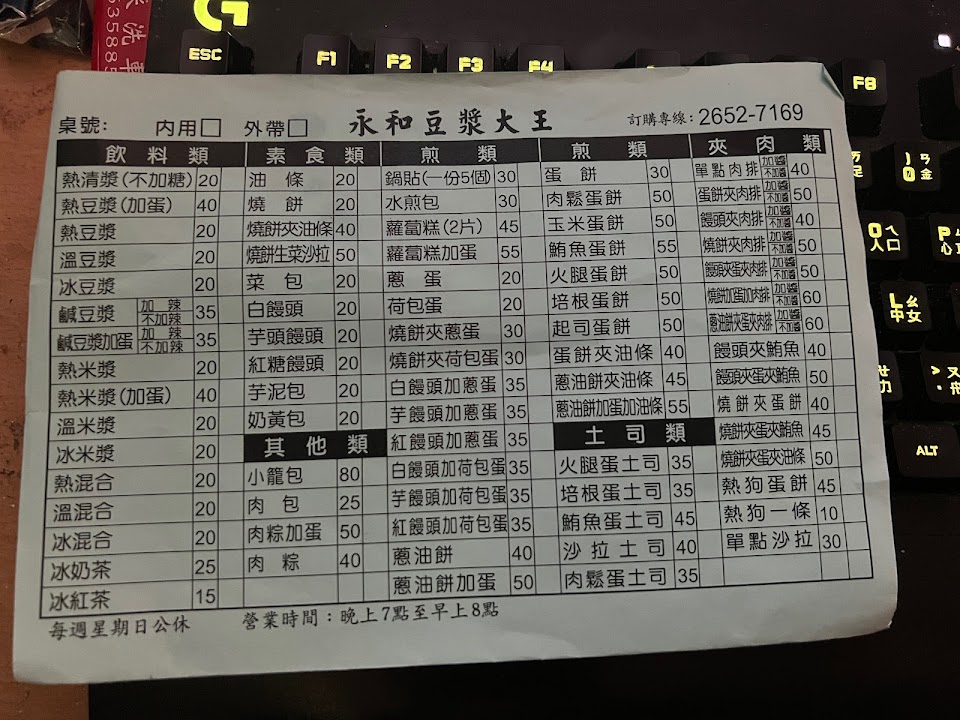 ESC F1 F2 F3 F4 F8
桌號: 內用□ 外帶□ 永和豆漿大王 訂購專線: 2652-7169
飲料類
熱清漿(不加糖) 20
熱豆漿(加蛋) 40
熱豆漿 20
溫豆漿 20
冰豆漿 20
鹹豆漿 加辣 不加辣 35
鹹豆漿加蛋 加辣 不加辣 35
熱米漿 20
熱米漿(加蛋) 40
溫米漿 20
冰米漿 20
熱混合 20
溫混合 20
冰混合 20
冰奶茶 25
冰紅茶 15
素食類
油條 20
燒餅 20
燒餅夾油條 40
燒餅生菜沙拉 50
菜包 20
白饅頭 20
芋頭饅頭 20
紅糖饅頭 20
芋泥包 20
奶黃包 20
其他類
小籠包 80
肉包 25
肉粽加蛋 50
肉粽 40
煎類
鍋貼(一份5個) 30
水煎包 30
蘿蔔糕(2片) 45
蘿蔔糕加蛋 55
蔥蛋 20
荷包蛋 20
燒餅夾蔥蛋 30
燒餅夾荷包蛋 30
白饅頭加蔥蛋 35
芋饅頭加蔥蛋 35
紅饅頭加蔥蛋 35
白饅頭加荷包蛋 35
芋饅頭加荷包蛋 35
紅饅頭加荷包蛋 35
蔥油餅 40
蔥油餅加蛋 50
煎類
蛋餅 30
肉鬆蛋餅 50
玉米蛋餅 50
鮪魚蛋餅 55
火腿蛋餅 50
培根蛋餅 50
起司蛋餅 50
蛋餅夾油條 40
蔥油餅夾油條 45
蔥油餅加蛋加油條 55
土司類
火腿蛋土司 35
培根蛋土司 35
鮪魚蛋土司 45
沙拉土司 40
肉鬆蛋土司 35
夾肉類
單點肉排 加醬 不加醬 40
蛋餅夾肉排 加醬 不加醬 50
饅頭夾肉排 加醬 不加醬 40
燒餅夾肉排 加醬 不加醬 50
饅頭夾蛋夾肉排 加醬 不加醬 50
燒餅加蛋加肉排 加醬 不加醬 60
蔥油餅夾蛋夾肉排 加醬 不加醬 60
饅頭夾鮪魚 40
饅頭夾蛋夾鮪魚 50
燒餅夾蛋餅 40
燒餅夾蛋夾鮪魚 45
燒餅夾蛋夾油條 50
熱狗蛋餅 45
熱狗一條 10
單點沙拉 30
每週星期日公休 營業時間：晚上7點至早上8點
ALT